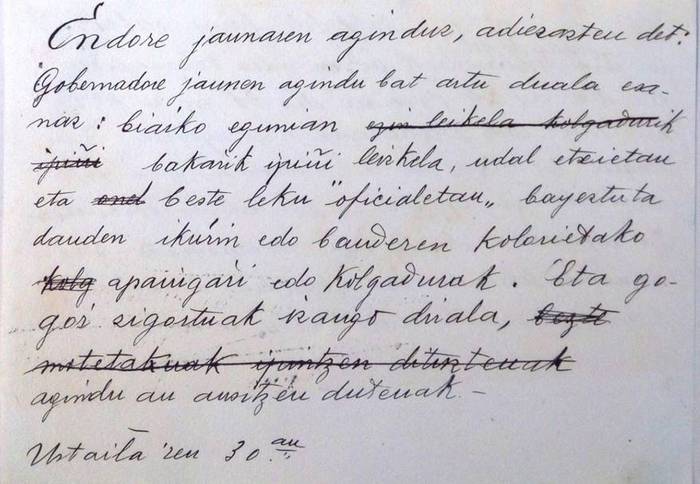 Endore jaunaren aginduz, adierazten det:
Gobernadore jaunen agindu bat artu duala esa-
naz: biaiko egunian ezin leikela kolgadurik
ipiñi bakarik ipiñi leizkela, udal etxietan
eta beste leku "oficialetan„ bayeztuta
dauden ikurin edo banderen kolorietako
kolg apaingari edo kolgadurak. Eta go-
gor zigortuak izango dirala, bezte
agindu au austen dutenak –
Ustaila'ren 30 an